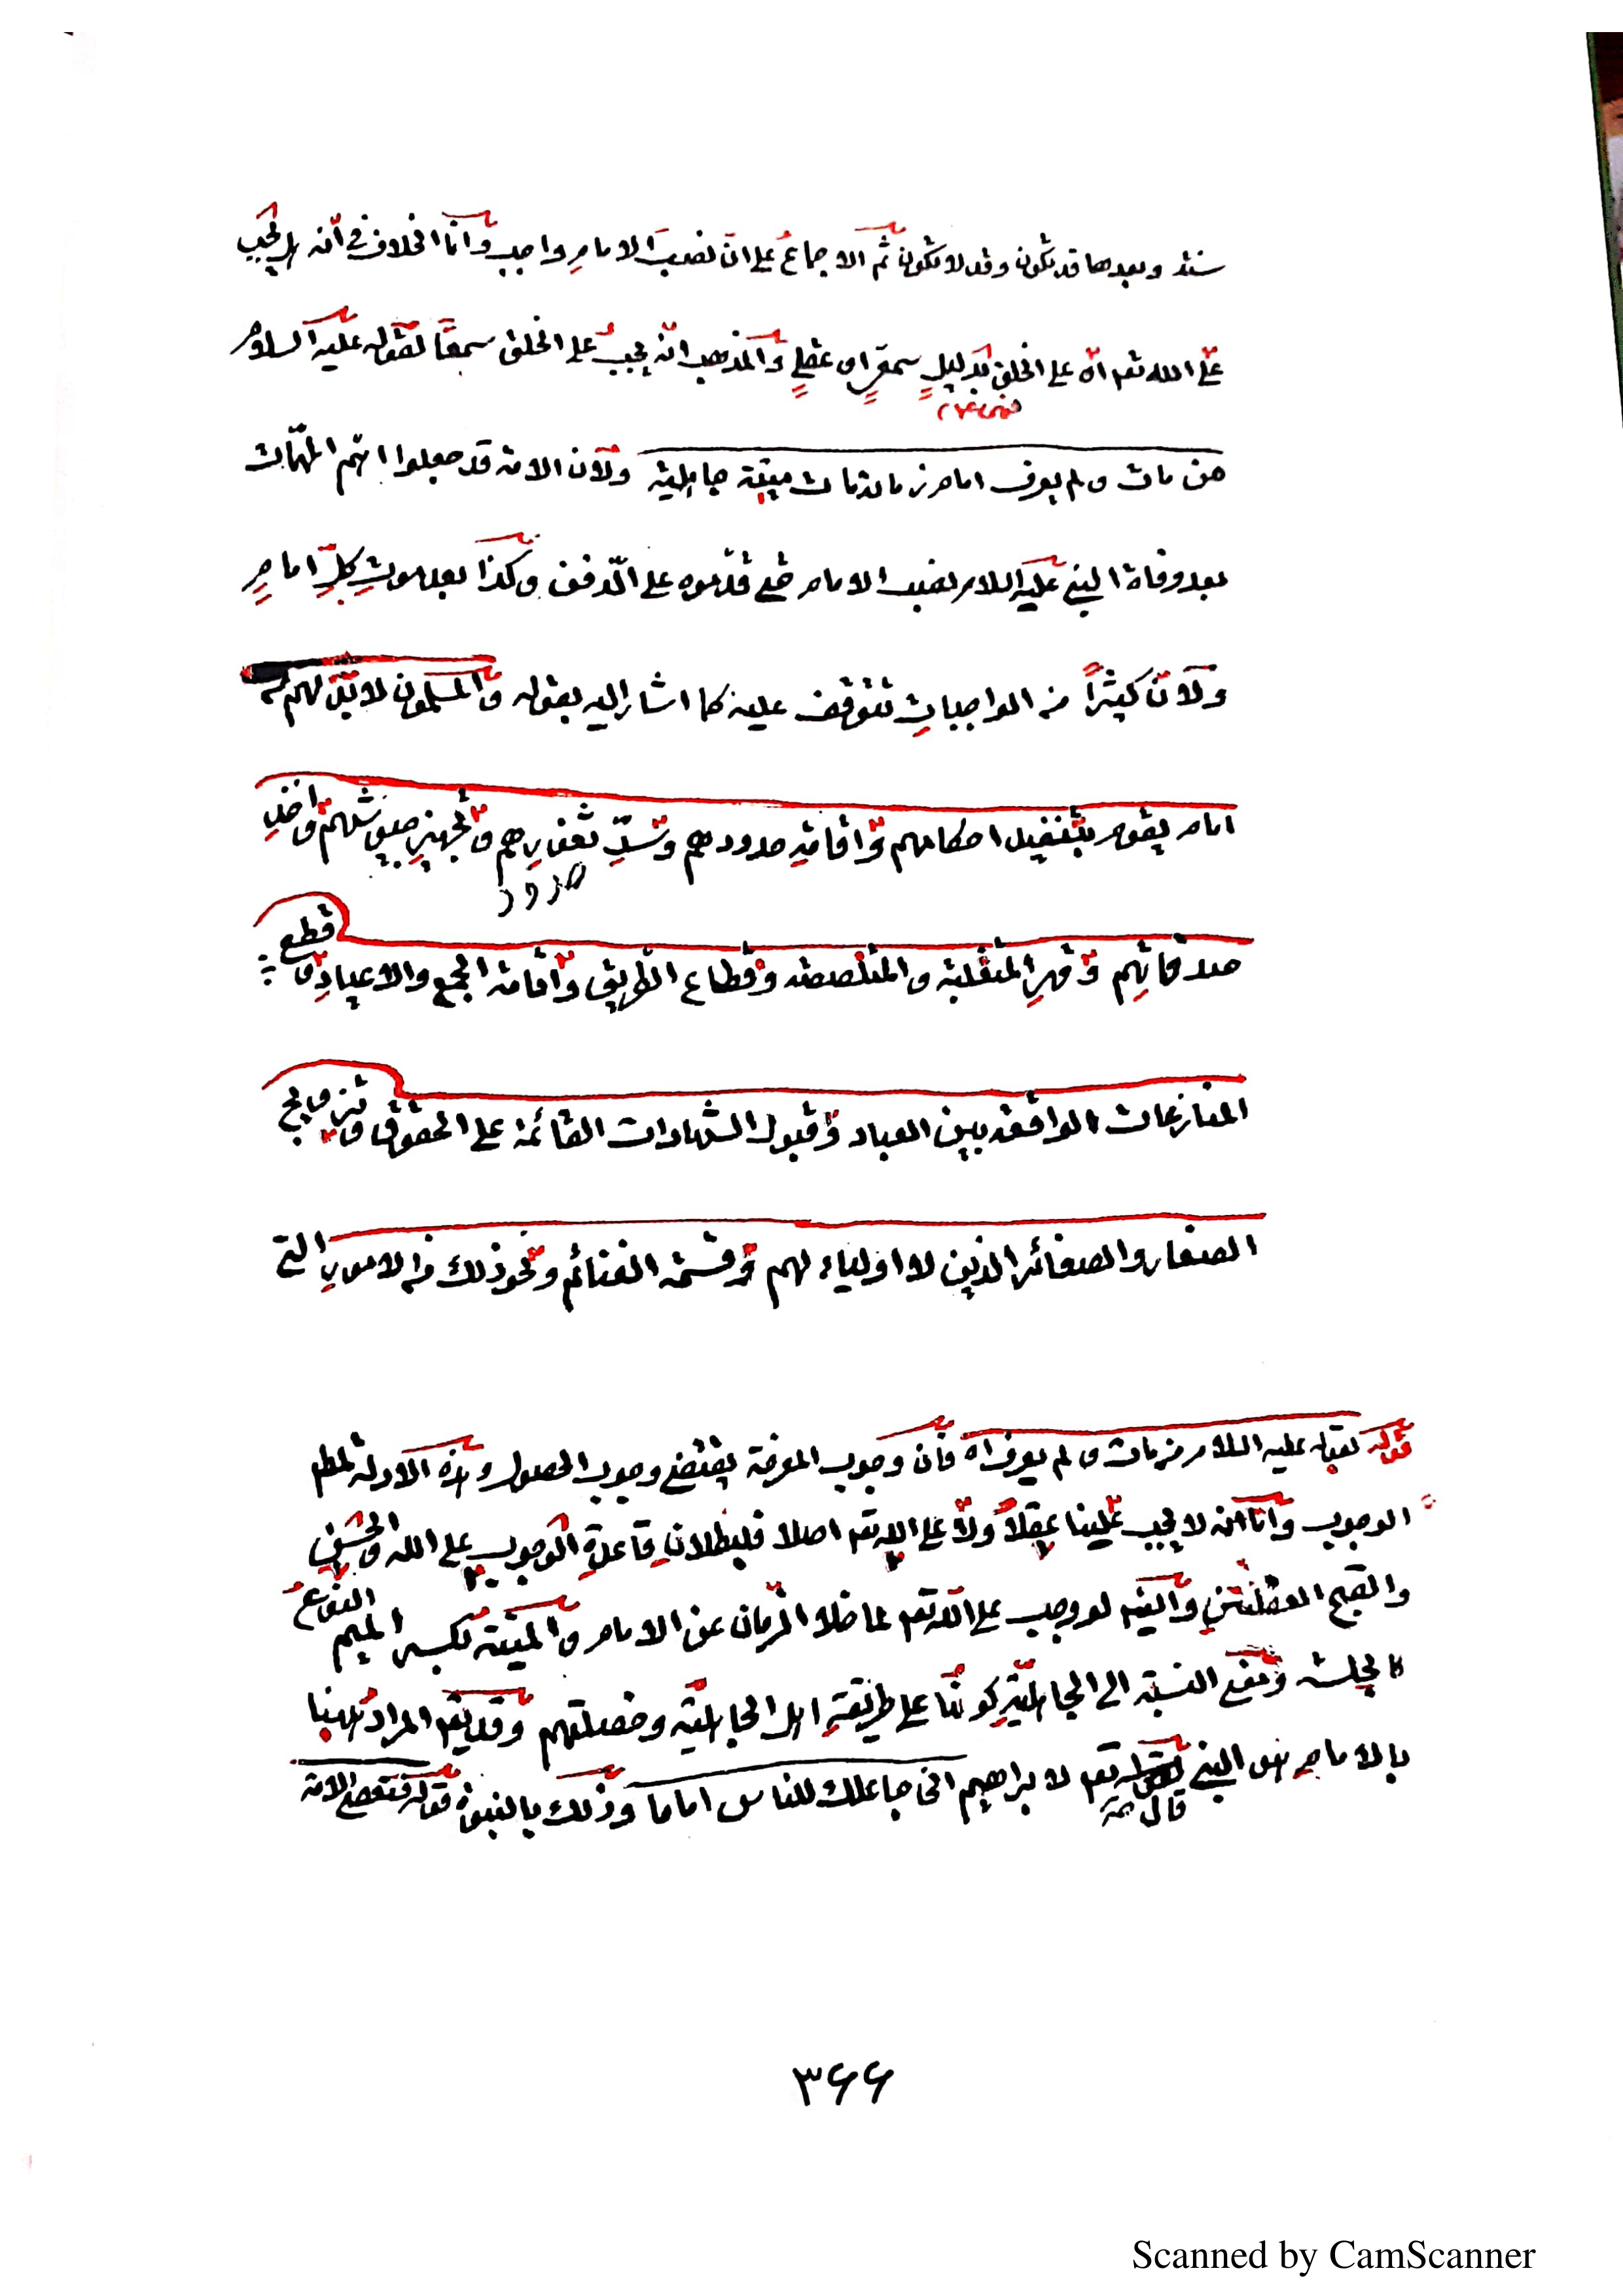 سنة وبعدها قد تكون وقد لا تكون ثم الاجماع على ان نصب الامام واجب وانما الخلاف في انه هل يجب
على الله تع او على الخلق بدليل سمعي او عقلي والمذهب انه يجب على الخلق سمعا لقوله عليه السلام
من مات ولم يعرف امام زمانه مات ميتة جاهلية ولان الامة قد جعلوا اهم المهمات
بعد وفاة النبي عليه السلام نصب الامام حتى قدموه على الدفن وكذا بعد موت كل امام
ولان كثيرا من الواجبات تتوقف عليه كما اشار اليه بقوله والمسلمون لا بد لهم من
امام يقوم بتنفيذ احكامهم واقامة حدودهم وسد ثغورهم وتجهيز جيوشهم واخذ
حدود
صدقاتهم وقهر المتغلبة والمتلصصة وقطاع الطريق واقامة الجمع والاعياد وقطع
المنازعات الواقعة بين العباد وقبول الشهادات القائمة على الحقوق وتزويج
الصغار والصغائر الذين لا اولياء لهم وقسمة الغنائم ونحو ذلك من الامور التي
قوله لقوله عليه السلام من مات ولم يعرف اه فان وجوب المعرفة يقتضي وجوب الحصول وهذه الادلة لمطلق
الوجوب واما انه لا يجب علينا عقلا ولا على الله تع اصلا فلبطلان قاعدة الوجوب على الله والحسن
والقبح العقليين وايضا لو وجب على الله تع لما خلا الزمان عن الامام والميتة بكسر الميم النوع
كالجلسة ومعنى النسبة الى الجاهلية كونها على طريقة اهل الجاهلية وخصلتهم وقد يق المراد ههنا
بالامام هو النبي قال الله تع لابراهيم اني جاعلك للناس اماما وذلك بالنبوة قوله فتعصى الامة
٣٦٦
Scanned by CamScanner